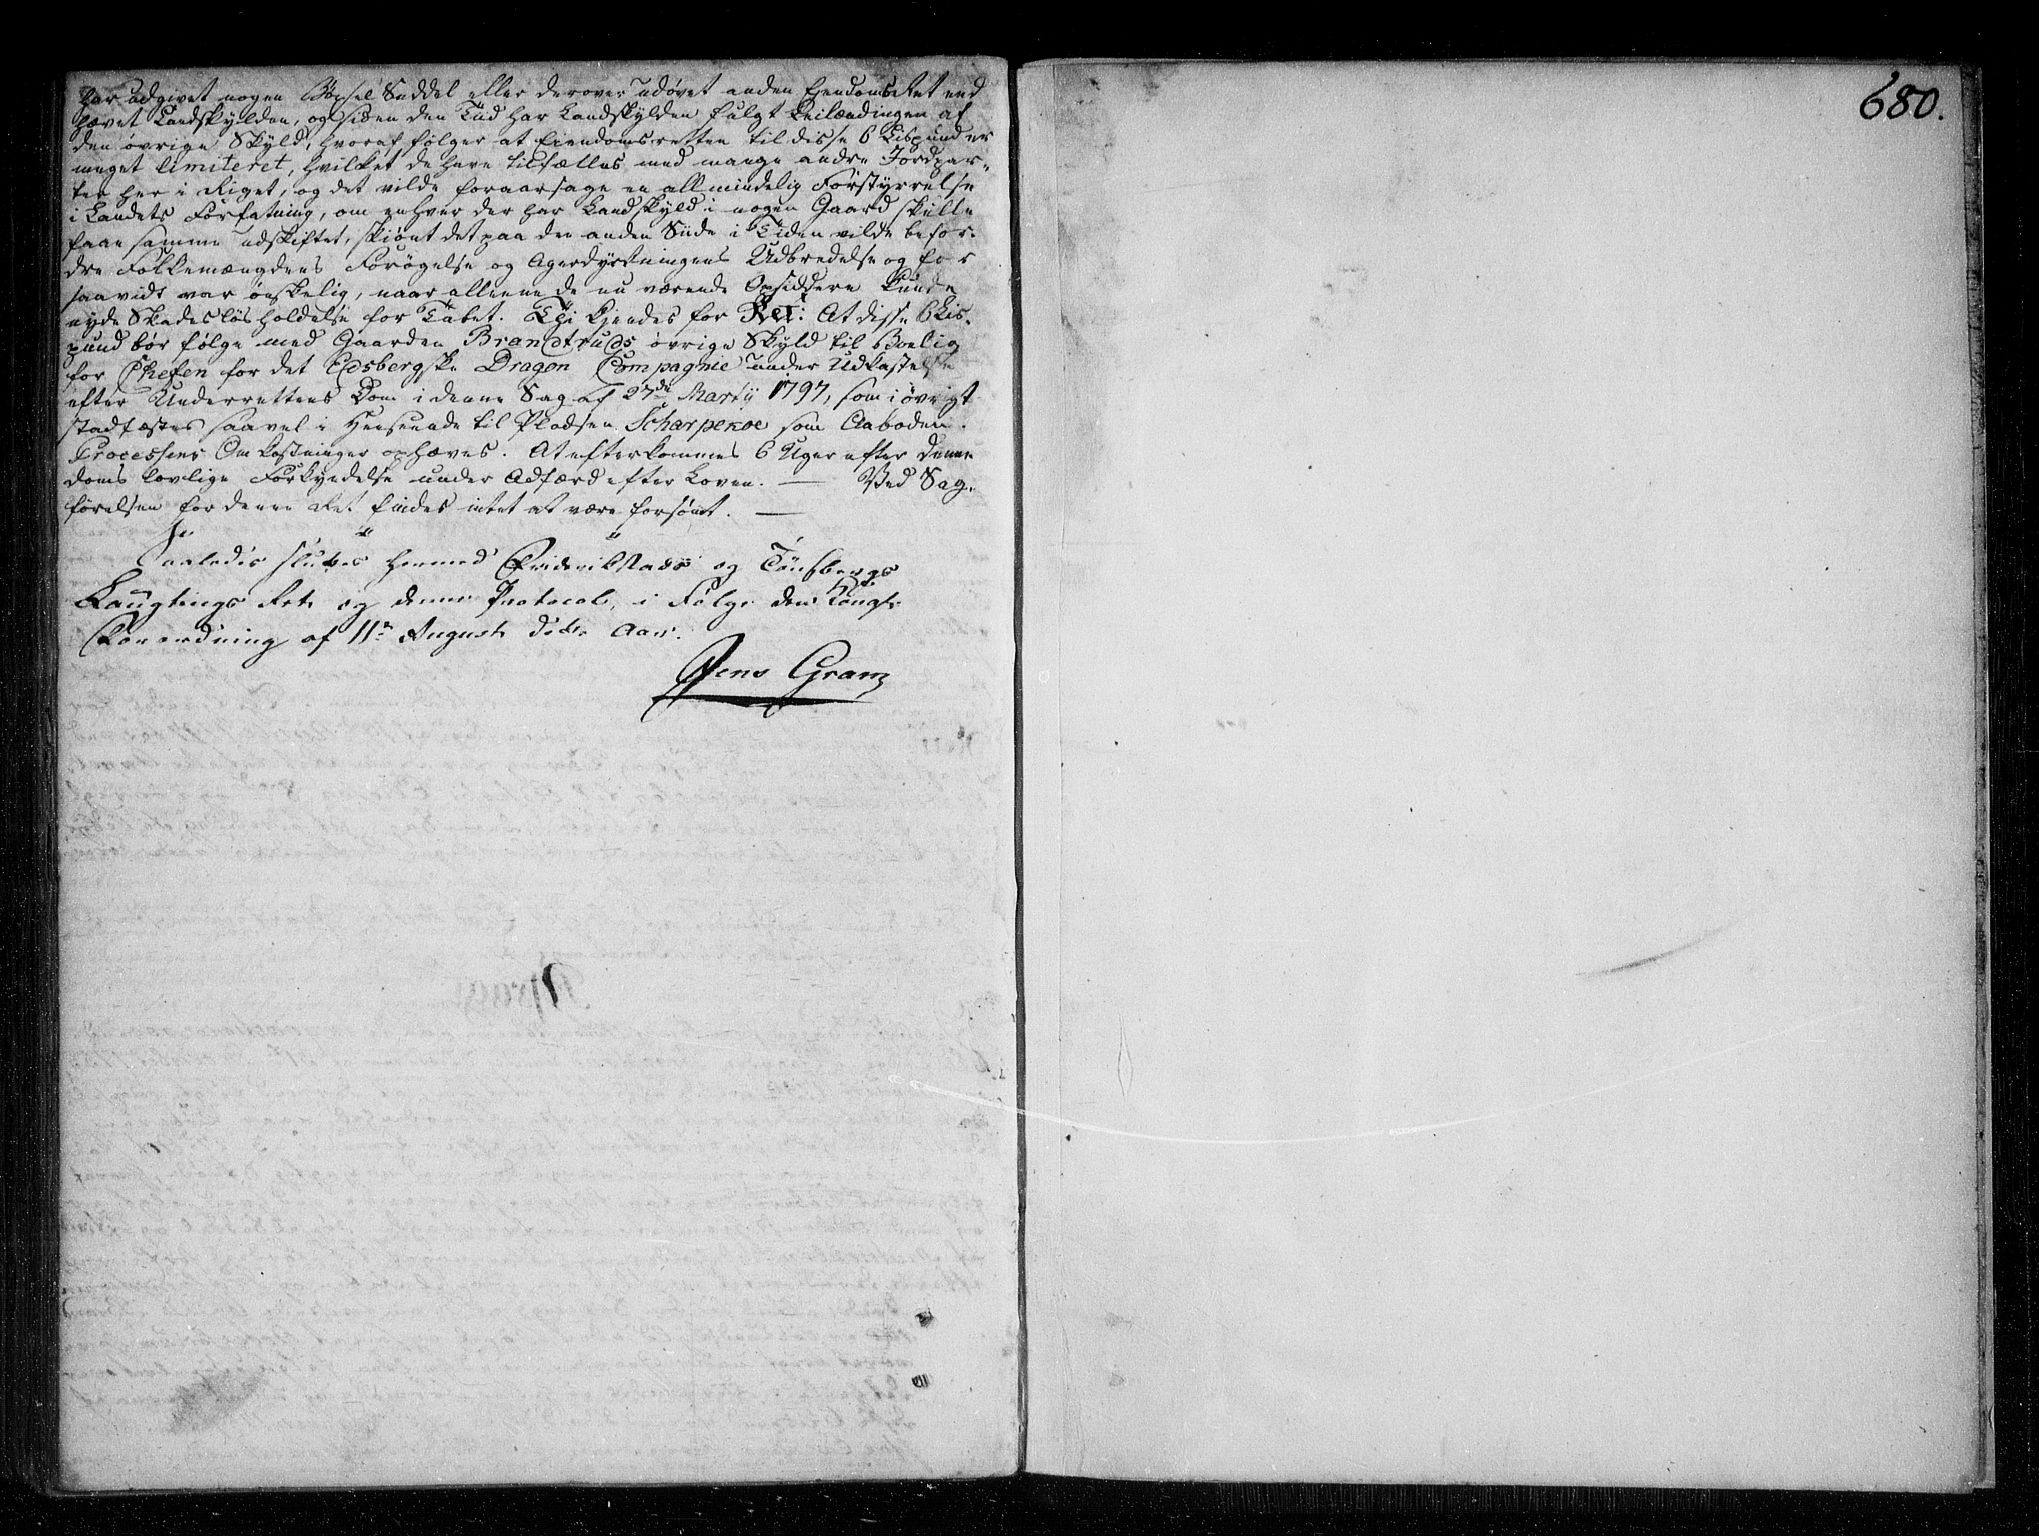 har udgivet nogen Bøxsel Seddel eller derover udøvet anden Ejendoms Ret end
hævet Landskylden, og siden den Tiid har Landskylden fulgt Beilændingen af
den øvrige Skyld, hvoraf følger at Eiendomsretten til disse 6 Lispund er
meget limiteret, hvilket de have tilfælles med mange andre Jordpar-
ter her i Riget, og det vilde foraarsage en allmindelig Forstyrrelse
i Landets Forfatning, om enhver der har Landskyld i nogen Gaard skulle
faae samme udskiftet, skiønt det paa den anden Siide i Tiden vilde befor-
dre Folkemængdens Forøgelse og Agerdyrkningens Udbredelse og for
saavidt var ønskelig, naar alleene de nu værende Opsiddere kunde
nyde Skadesløsholdelse for Tabet. Thi kjendes for Ret: At disse 6 Lis-
pund bør følge med Gaarden Brandtruds øvrige Skyld til Boelig
for Chefen for det Edsbergske Dragon Compagnie under Udkastelse
efter Underrettens Dom i denne Sag af 27de Martii 1797, som i øvrigt
stadfæstes saavel i Henseende til Pladsen Scharpenoe som Aaboden.
Processens Omkostninger ophæves. At efterkommes 6 Uger efter denne
Doms lovlige Forkyndelse under Adfærd efter Loven. — Ved Sag-
førelsen for denne Ret findes intet at være forsømt. —
Saaledes sluttes hermed Friderikstads og Tønsbergs
Laugtings Ret og denne Protocol, i Følge den Kongl:
Forordning af 11te August dette Aar.
Jens Gram
680.